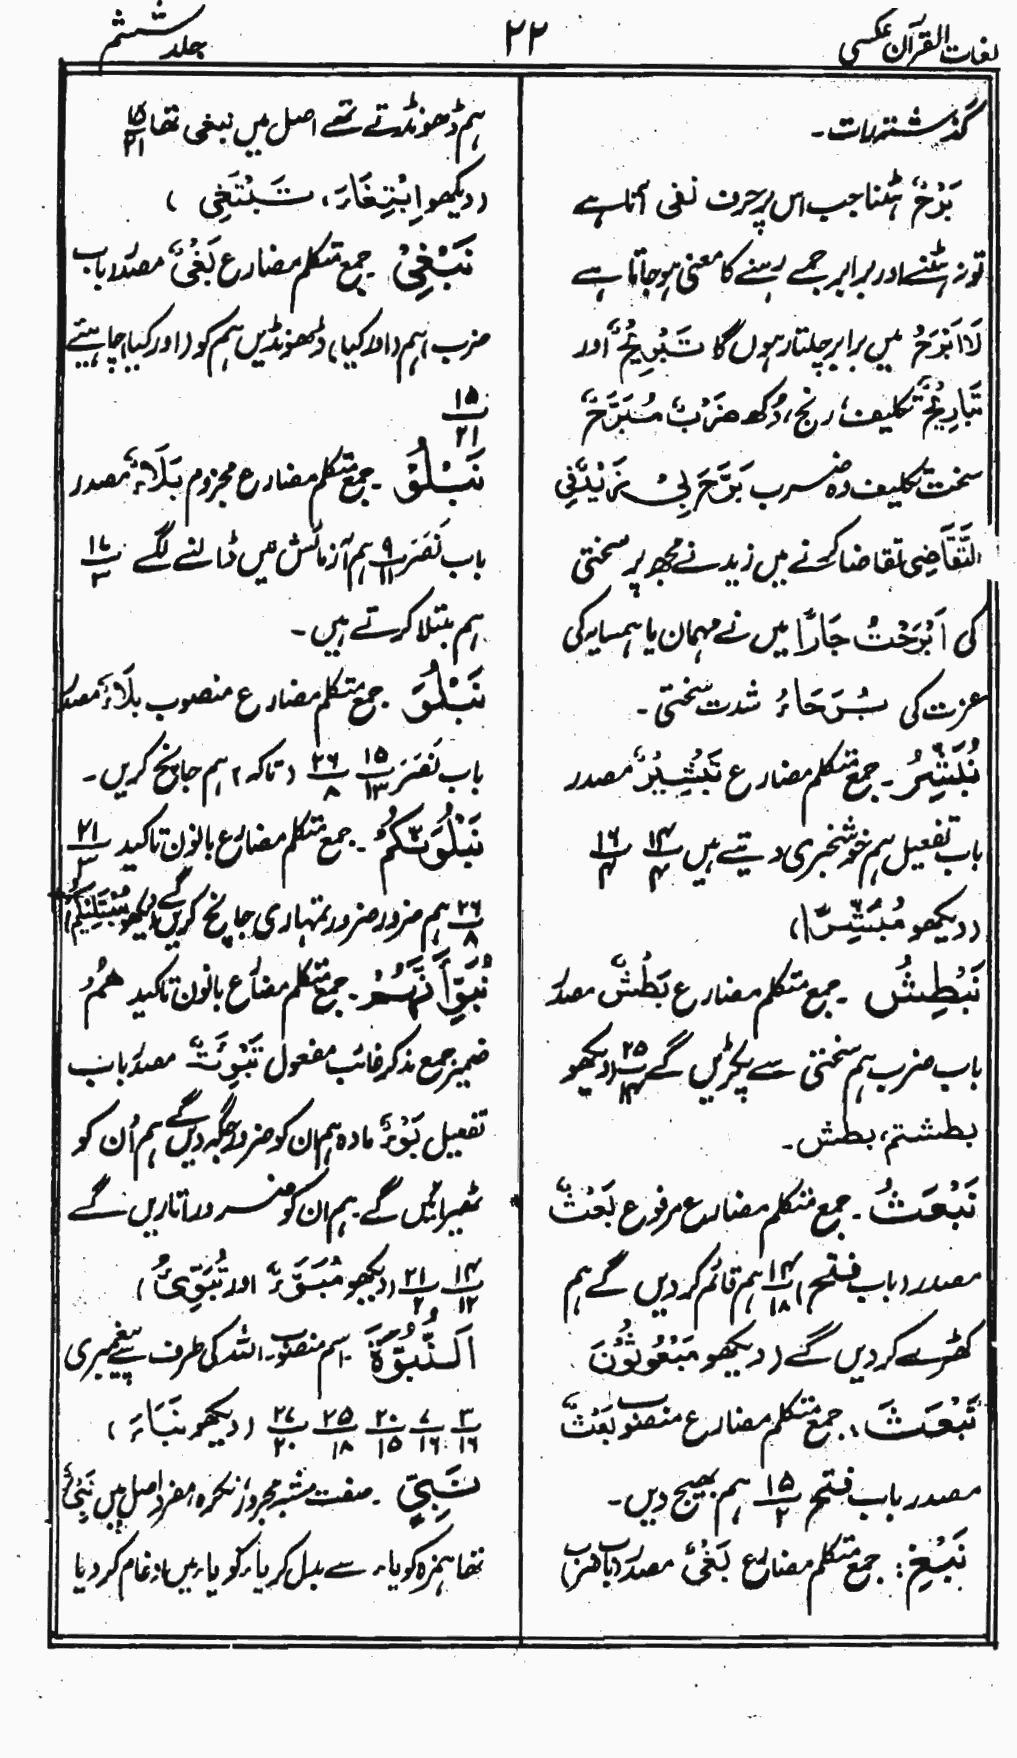 لغات القرآن عکسی
۲۲
جلد ششم
گذشتہ رات۔
بَرْحٌ ہٹنا جب اس پر حرف نفی آتا ہے
تو نہ ہٹنے اور برابر جمے رہنے کا معنی ہو جاتا ہے
لَا اَبْرَحُ میں برابر چلتا رہوں گا تَبْرِیْحٌ اور
تَبَارِیْحٌ تکلیف، رنج، دُکھ ضَرْبٌ مُبَرَّحٌ
سخت تکلیف دہ ضرب بَرَّحَ بِیْ زَیْدٌ فِی
التَّقَاضِی تقاضا کرنے میں زید نے مجھ پر سختی
کی اَبْرَحْتُ جَارًا میں نے مہمان یا ہمسایہ کی
عزت کی بُرَحَاءُ شدت سختی۔
نُبَشِّرُ۔ جمع متکلم مضارع تَبْشِیْرٌ مصدر
باب تفعیل ہم خوشخبری دیتے ہیں ۱۴/۴ ۱۶/۴
(دیکھو مُبَشِّرًا)
نَبْطِشُ ۔ جمع متکلم مضارع بَطْشٌ مصدر
باب ضرب ہم سختی سے پکڑیں گے ۲۵/۱۴ (دیکھو
بطشتم، بطش۔
نَبْعَثُ۔ جمع متکلم مضارع مرفوع بَعْثٌ
مصدر (باب فتح) ۱۴/۱۸ ہم قائم کر دیں گے ہم
کھڑے کر دیں گے (دیکھو مَبْعُوثُوْنَ
نَبْعَثَ، جمع متکلم مضارع منصوب بَعْثٌ
مصدر باب فتح ۱۵/۲ ہم بھیج دیں۔
نَبْغِ: جمع متکلم مضارع بَغْیٌ مصدر (باب ضرب)
ہم ڈھونڈتے تھے اصل میں نبغی تھا ۱۵/۲۱
(دیکھو اِبْتِغَاءَ، تَبْتَغِی )
نَبْغِیْ جمع متکلم مضارع بَغْیٌ مصدر باب
ضرب ہم (اور کیا) ڈھونڈیں ہم کو (اور کیا) چاہیئے
۱۵/۲۱
نَبْلُوْ ۔ جمع متکلم مضارع مجزوم بَلَاءٌ مصدر
باب نَصَرَ ۹/۱۱ ہم آزمائش میں ڈالنے لگے ۱۶/۳
ہم مبتلا کرتے ہیں۔
نَبْلُوَ جمع متکلم مضارع منصوب بلَاءٌ مصدر
باب نَصَرَ ۱۵/۱۳ ۲۶/۸ (تاکہ) ہم جانچ کریں۔
نَبْلُوَنَّکُمْ۔ جمع متکلم مضارع بانون تاکید ۲۱/۳
۲۶/۸ ہم ضرور ضرور تمہاری جانچ کریں گے (دیکھو مُبْتَلِیْکُمْ)
نُبَوِّأَنَّہُمْ۔ جمع متکلم مضارع بانون تاکید ھُمْ
ضمیر جمع مذکر غائب مفعول تَبْوِئَۃٌ مصدر باب
تفعیل بَوْءٌ مادہ ہم ان کو ضرور جگہ دیں گے ہم اُن کو
ٹھیرائیں گے ہم ان کو ضرور اتاریں گے
۱۴/۱۲ ۲۱/۲ (دیکھو مُبَوَّءَ اور تُبَوِّیُٔ)
اَلنُّبُوَّۃَ ۔ اسم منصوب۔ اللہ کی طرف سے پیغمبری
۳/۱۶ ۷/۱۶ ۲۰/۱۵ ۲۵/۱۸ ۲۷/۲۰ (دیکھو نَبَاءَ)
نَبِیٍّ ۔ صفت مشبہ مجرور نکرہ مفرد اصل میں نَبِیْءٌ
تھا ہمزہ کو یاء سے بدل کر یاء کو یاء میں ادغام کر دیا